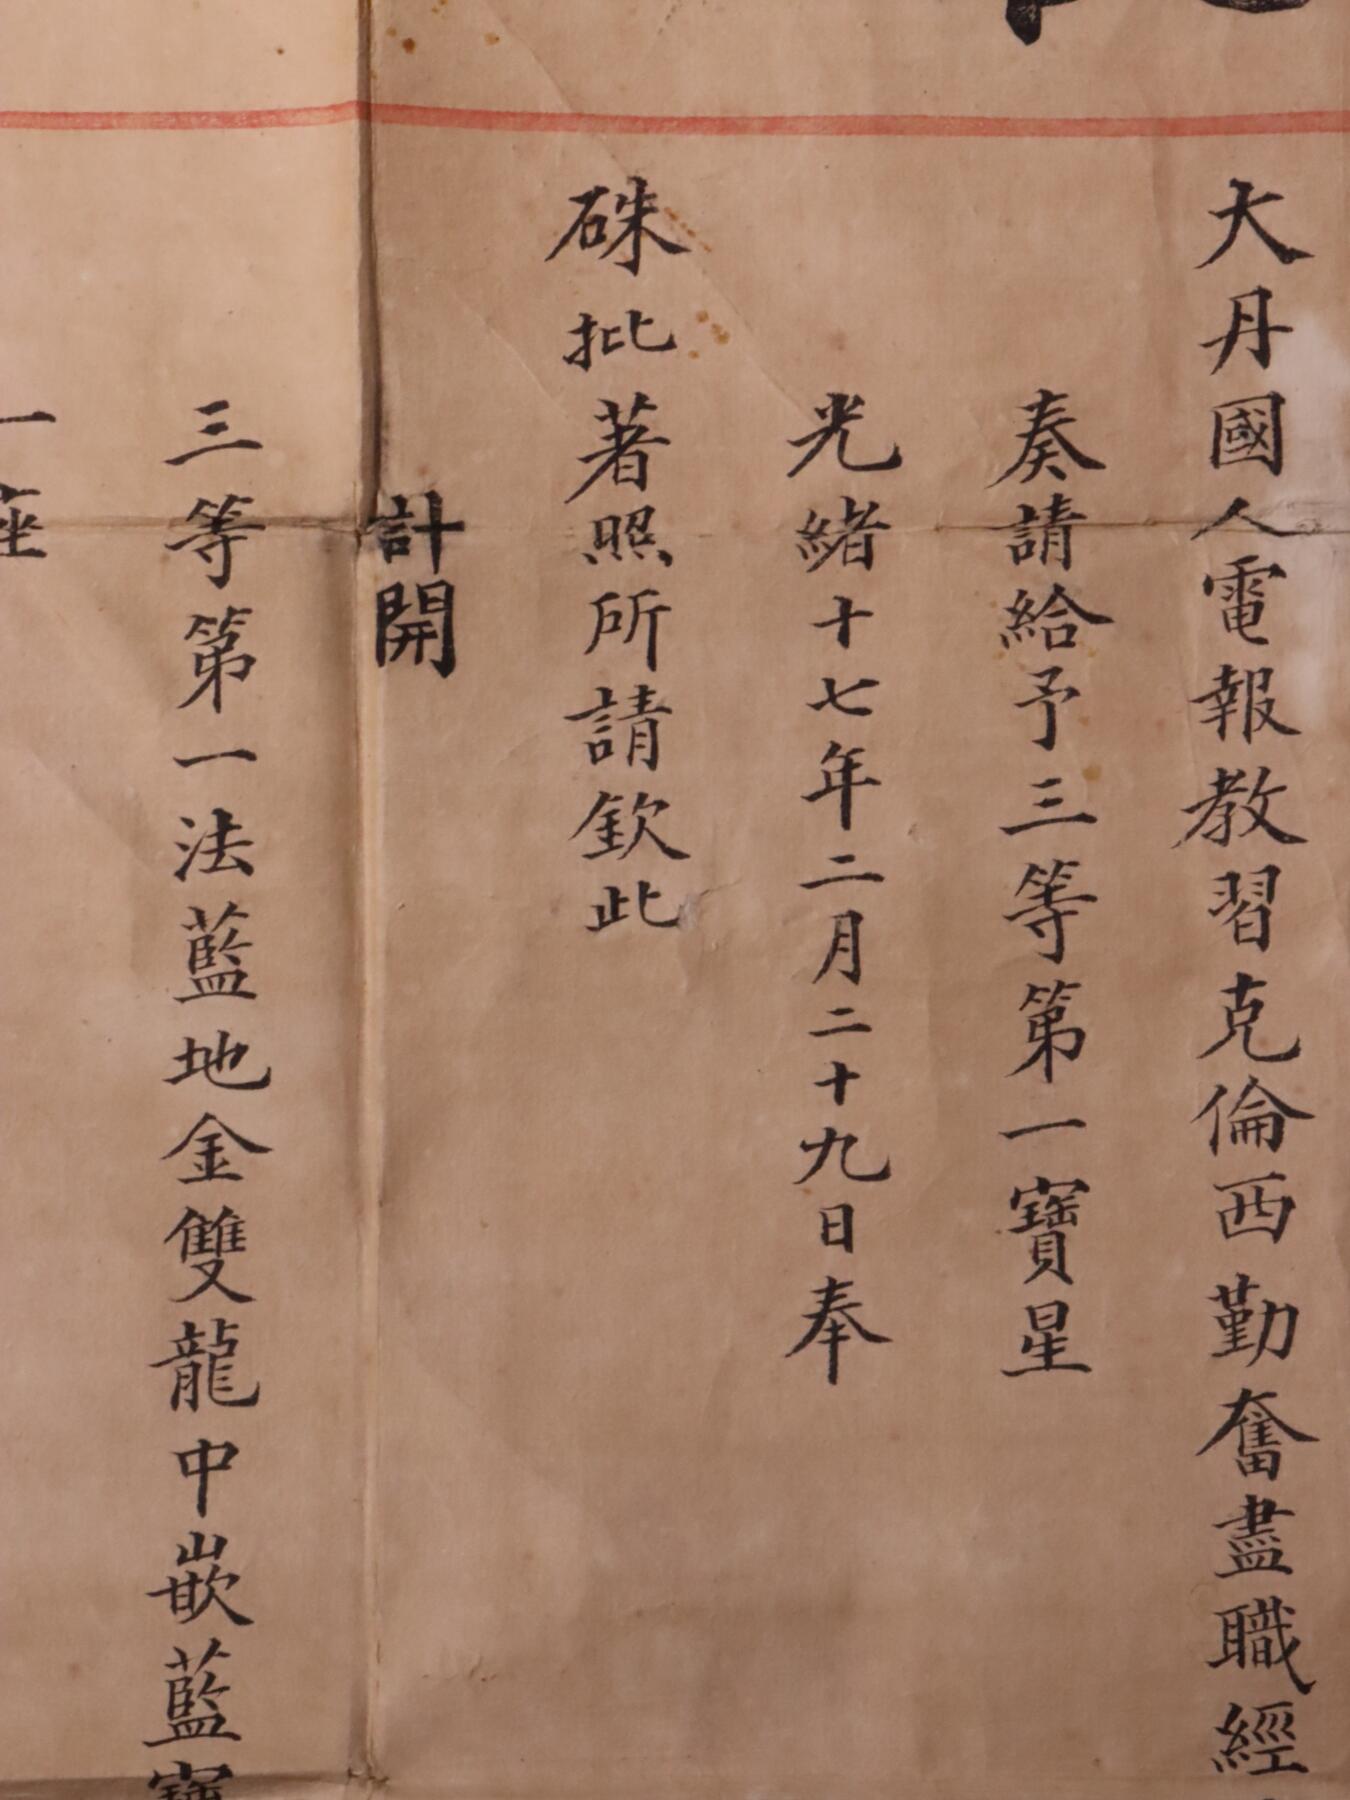 大丹國人電報教習克倫西勤奮盡職經
奏請給予三等第一寶星
光緒十七年二月二十九日奉
硃批著照所請欽此
計開
三等第一法藍地金雙龍中嵌藍寶
一座